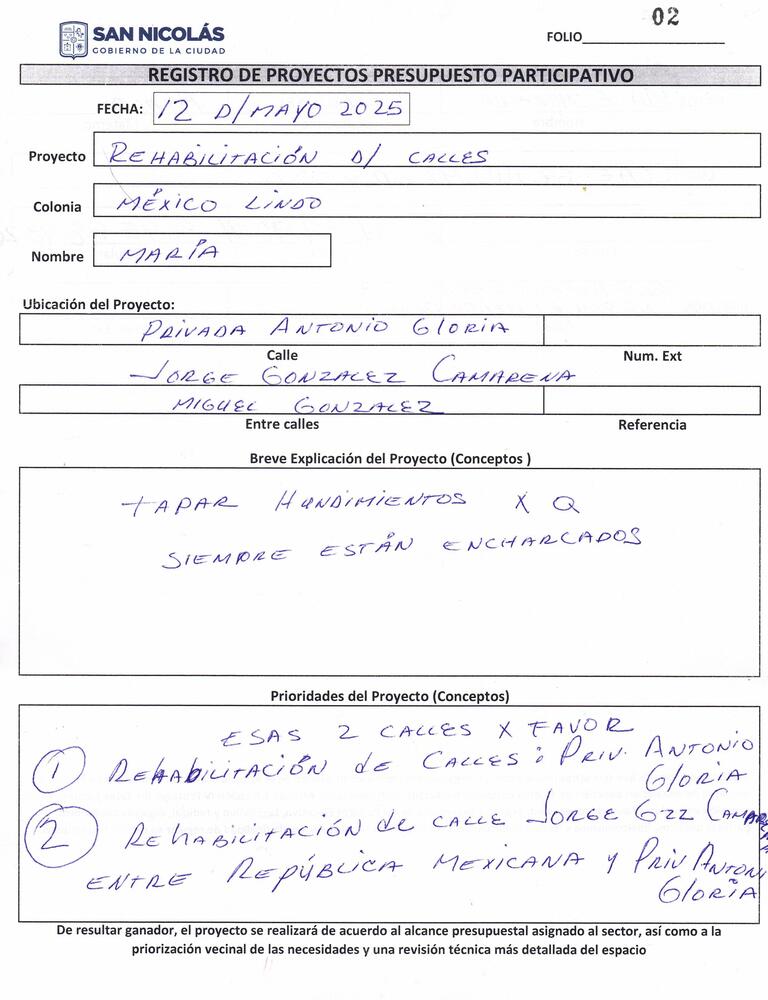 02
SAN NICOLÁS
GOBIERNO DE LA CIUDAD
FOLIO
REGISTRO DE PROYECTOS PRESUPUESTO PARTICIPATIVO
FECHA: 12 D/MAYO 2025
Proyecto REHABILITACIÓN D/ CALLES
Colonia MÉXICO LINDO
Nombre MARÍA
Ubicación del Proyecto:
PRIVADA ANTONIO GLORIA
Calle Num. Ext
JORGE GONZALEZ CAMARENA
MIGUEL GONZALEZ
Entre calles Referencia
Breve Explicación del Proyecto (Conceptos )
TAPAR HUNDIMIENTOS X Q
SIEMPRE ESTÁN ENCHARCADOS
Prioridades del Proyecto (Conceptos)
ESAS 2 CALLES X FAVOR
1 REHABILITACIÓN DE CALLES: PRIV. ANTONIO
GLORIA
2 REHABILITACIÓN de CALLE JORGE GZZ CAMARENA
ENTRE REPÚBLICA MEXICANA Y PRIV ANTONI
GLORIA
De resultar ganador, el proyecto se realizará de acuerdo al alcance presupuestal asignado al sector, así como a la
priorización vecinal de las necesidades y una revisión técnica más detallada del espacio